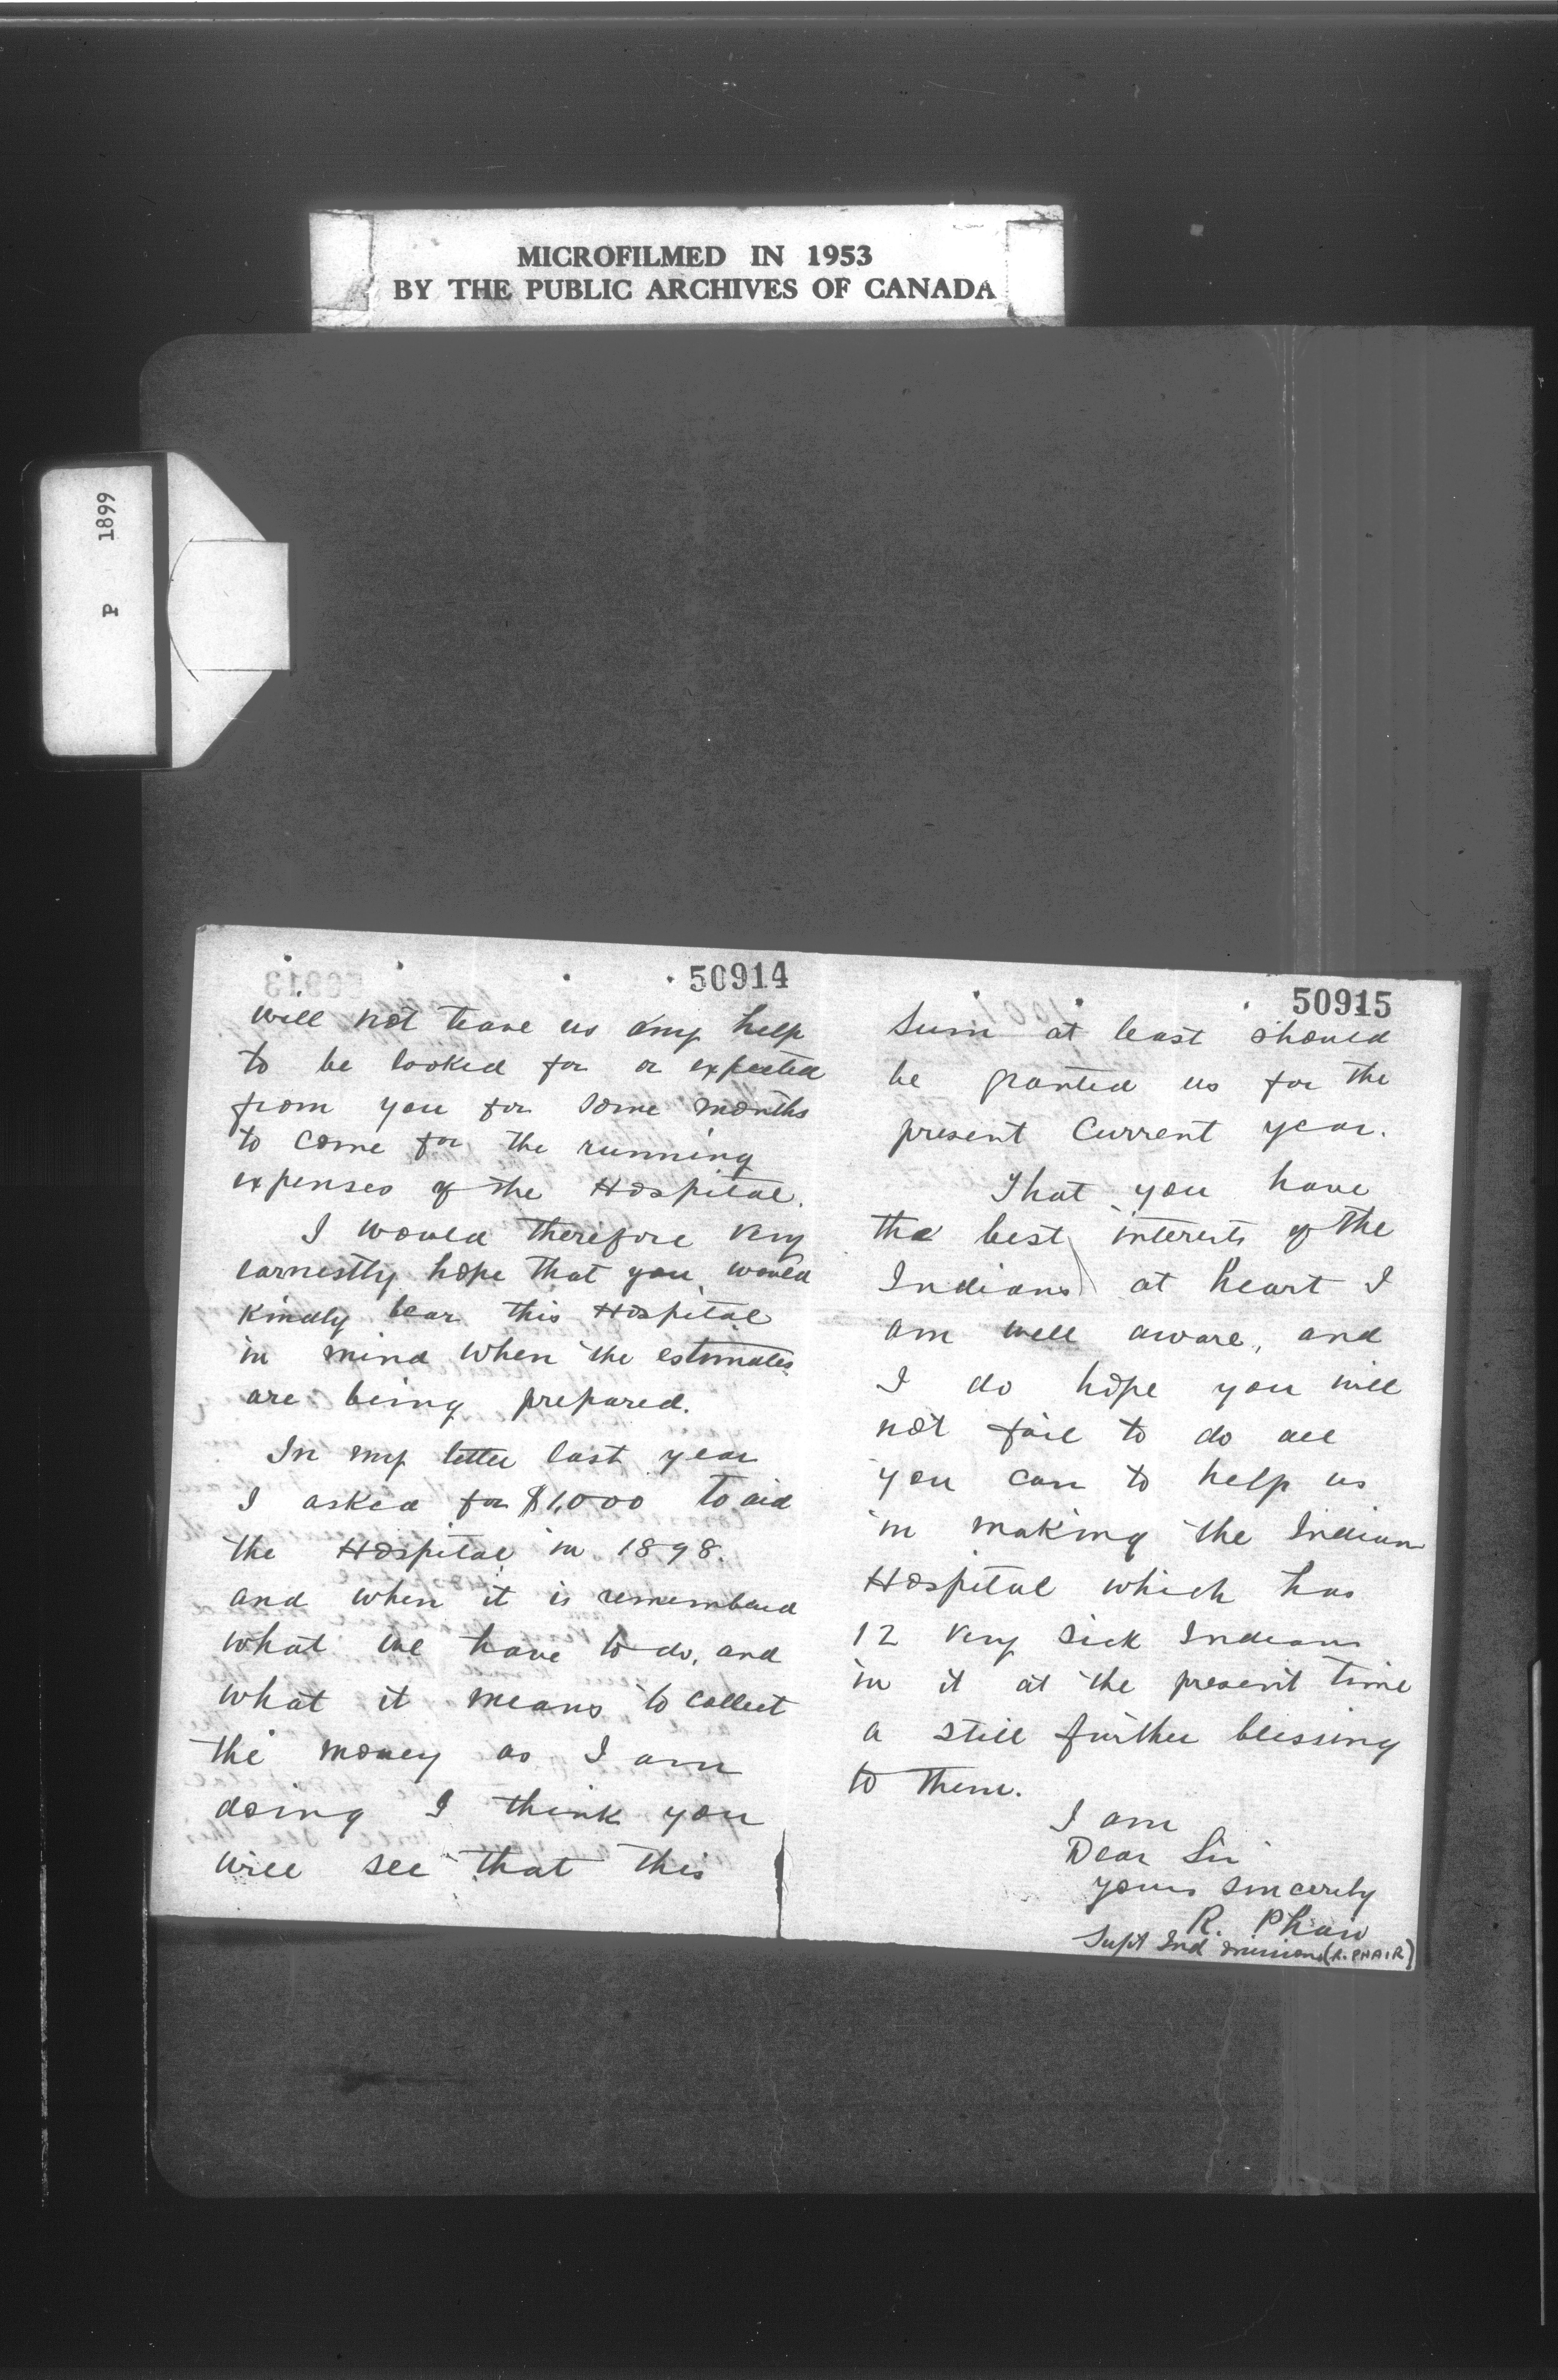 MICROFILMED IN 1953
BY THE PUBLIC ARCHIVES OF CANADA
P 1899
50914
will not leave us any help
to be looked for or expected
from you for some months
to come for the running
expenses of the Hospital.
I would therefore very
earnestly hope that you would
kindly bear this Hospital
in mind when the estimates
are being prepared.
In my letter last year
I asked for $1,000 to aid
the Hospital in 1898.
and when it is remembered
what we have to do, and
what it means to collect
the money as I am
doing I think you
will see that this
50915
Sum at least should
be granted us for the
present current year.
That you have
the best interests of the
Indians at heart I
am well aware, and
I do hope you will
not fail to do all
you can to help us
in making the Indian
Hospital which has
12 very sick Indians
in it at the present time
a still further blessing
to them.
I am
Dear Sir
yours sincerely
R. Phair
Supt Ind missions (R. PHAIR)